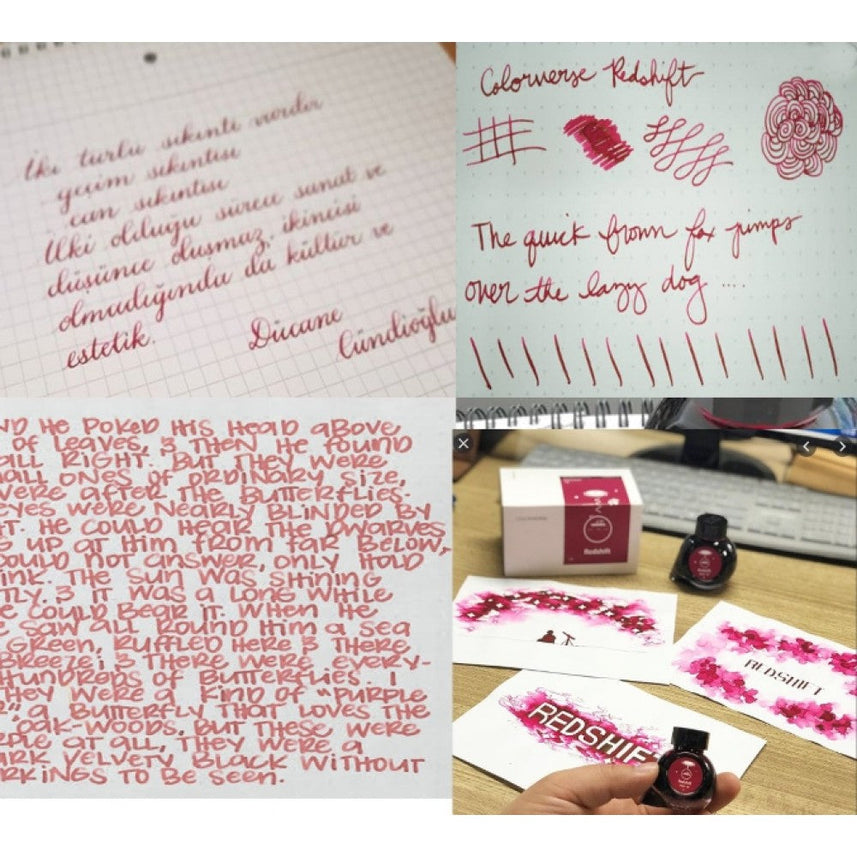 İki türlü sıkıntı vardır
geçim sıkıntısı
can sıkıntısı
İlki olduğu sürece sanat ve
düşünce oluşmaz, ikincisi
olmadığında da kültür ve
estetik.
Dücane
Cündioğlu
Colorverse Redshift
The quick brown fox jumps
over the lazy dog ....
ND HE POKED HIS HEAD ABOVE
OF LEAVES, & THEN HE FOUND
ALL RIGHT. BUT THEY WERE
ALL ONES OF ORDINARY SIZE,
WERE AFTER THE BUTTERFLIES.
EYES WERE NEARLY BLINDED BY
T. HE COULD HEAR THE DWARVES
G UP AT HIM FROM FAR BELOW,
OULD NOT ANSWER, ONLY HOLD
INK. THE SUN WAS SHINING
TLY, & IT WAS A LONG WHILE
E COULD BEAR IT. WHEN HE
E SAW ALL ROUND HIM A SEA
GREEN, RUFFLED HERE & THERE
BREEZE; & THERE WERE EVERY-
HUNDREDS OF BUTTERFLIES. I
THEY WERE A KIND OF "PURPLE
R", A BUTTERFLY THAT LOVES THE
OAK-WOODS, BUT THESE WERE
PLE AT ALL, THEY WERE A
ARK VELVETY BLACK WITHOUT
RKINGS TO BE SEEN.
Redshift
REDSHIFT
REDSHIF